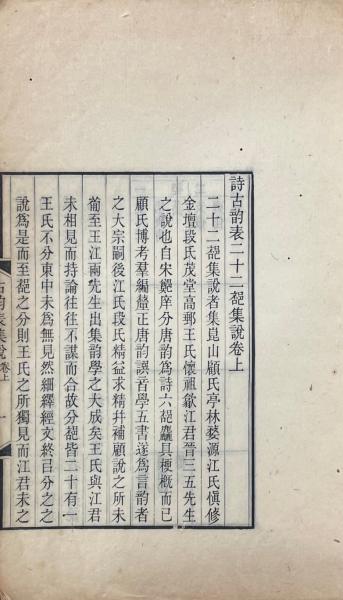 詩古韵表二十二部集說卷上
二十二部集說者集崑山顧氏亭林婺源江氏愼修
金壇段氏茂堂高郵王氏懷祖歙江君晉三五先生
之說也自宋鄭庠分唐韵為詩六部麤具梗概而已
顧氏博考羣編釐正唐韵譔音學五書遂為言韵者
之大宗嗣後江氏段氏精益求精幷補顧說之所未
葡至王江兩先生出集韵學之大成矣王氏與江君
未相見而持論往往不謀而合故分部皆二十有一
王氏不分東中未為無見然細繹經文終㠯分之之
說為是而至部之分則王氏之所獨見而江君未之
古韵表集說 卷上
一